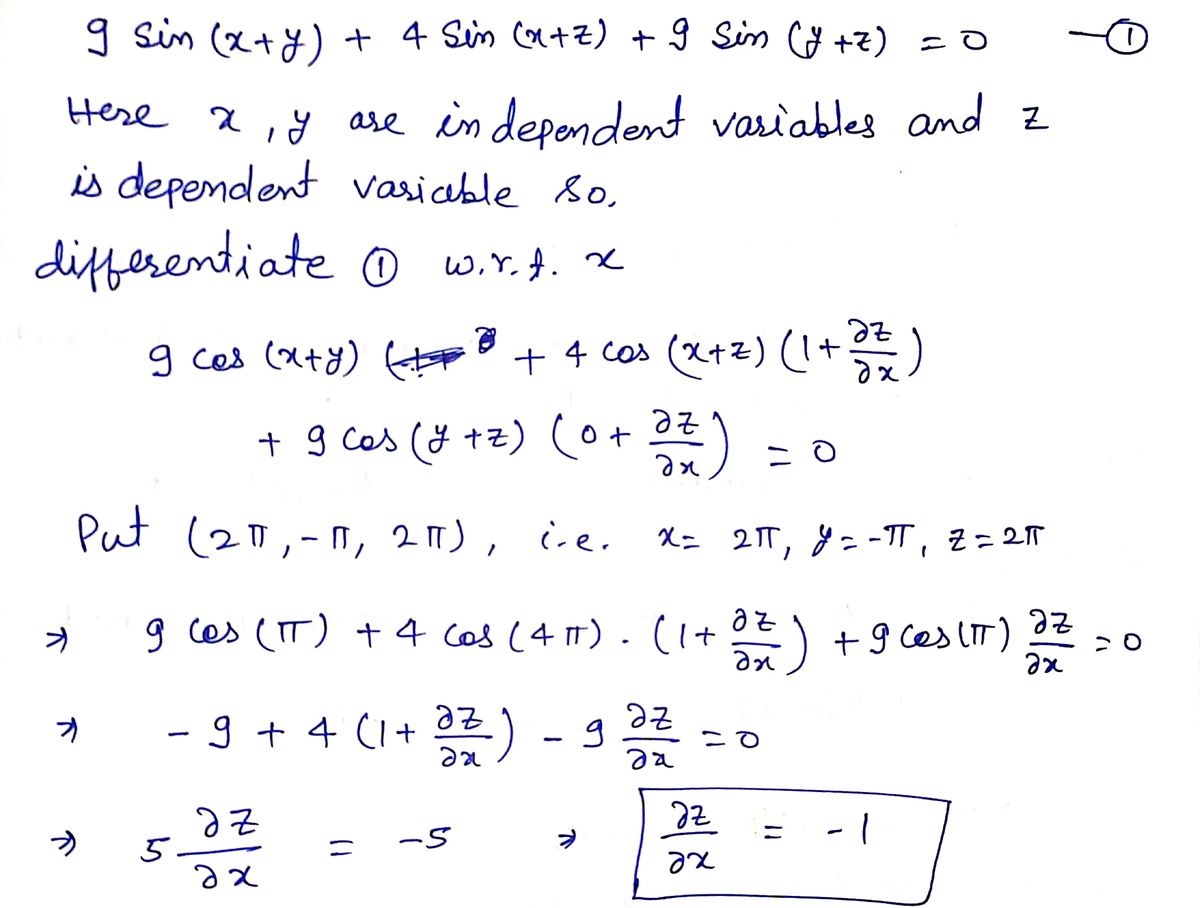 9 Sin (x+y) + 4 Sin (x+z) + 9 Sin (y+z) = 0 —①
Here x, y are independent variables and z
is dependent variable so,
differentiate ① w.r.t. x
9 cos (x+y) + 4 cos (x+z) (1+ ∂z/∂x)
+ 9 cos (y+z) (0+ ∂z/∂x) = 0
Put (2π, -π, 2π), i.e. x= 2π, y=-π, z=2π
⇒ 9 cos (π) + 4 cos (4π) . (1+ ∂z/∂x) + 9 cos(π) ∂z/∂x = 0
⇒ - 9 + 4 (1+ ∂z/∂x) - 9 ∂z/∂x = 0
⇒ 5 ∂z/∂x = -5 ⇒ ∂z/∂x = -1